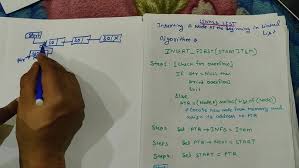 Start
20
30
20 X
Ptr
LINKED LIST
Inserting a Node at the Beginning in Linked
List
Algorithm:
INSERT_FIRST(START, ITEM)
Step1: [check for overflow]
If Ptr = NULL then
print overflow
Exit
Else
PTR = (Node*) malloc(size of (Node))
// Create new node from memory and
assign its address to PTR
Step2: Set PTR → INFO = Item
Step3: Set PTR →